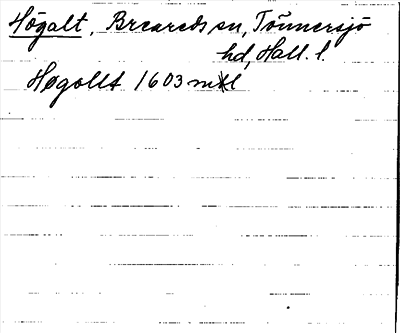 Högalt, Breareds sn, Tönnersjö
hd, Hall. l.
Høgollt 1603 mtl